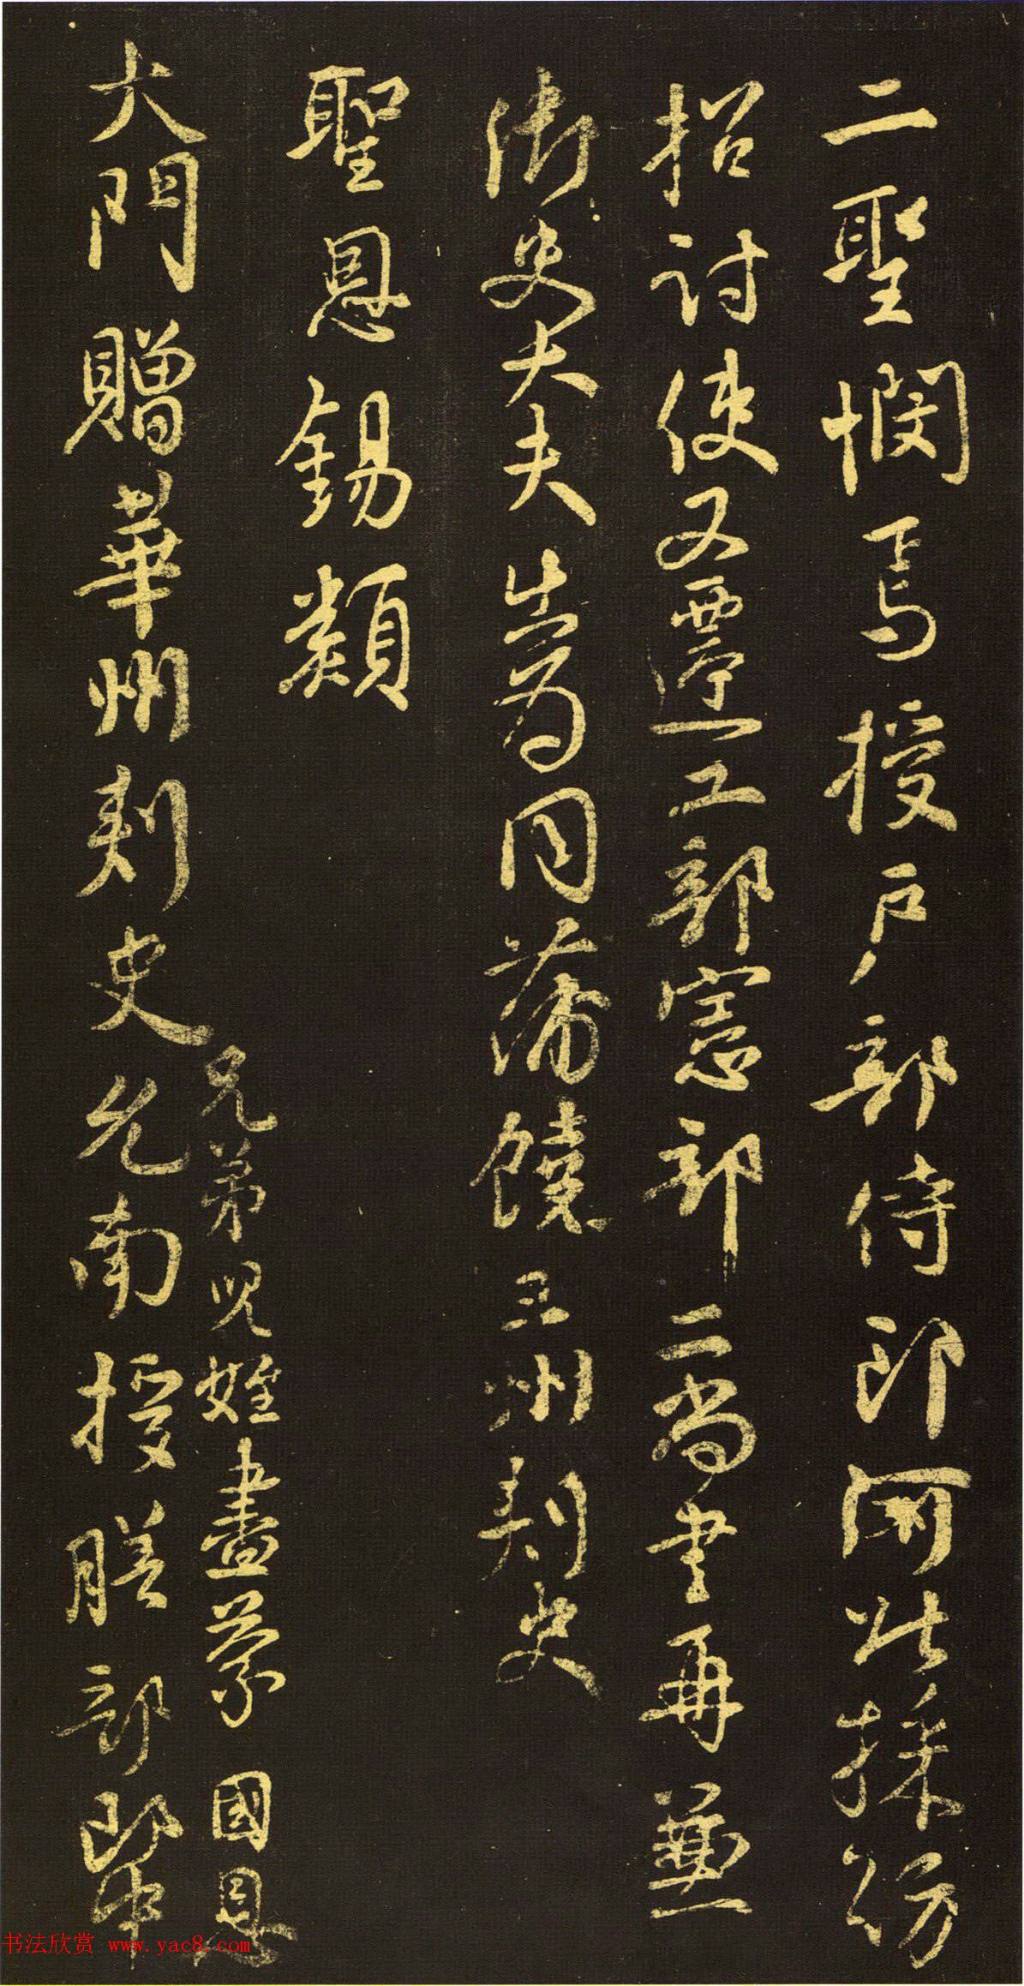 二聖憫焉授戶部侍郎河北採訪
招討使又遷工部憲部二尚書再兼
御史大夫出為同蒲饒三州刺史
聖恩錫類
兄弟兒姪盡蒙國恩
大門贈華州刺史允南授膳部郎中
书法欣赏 www.yac8.com